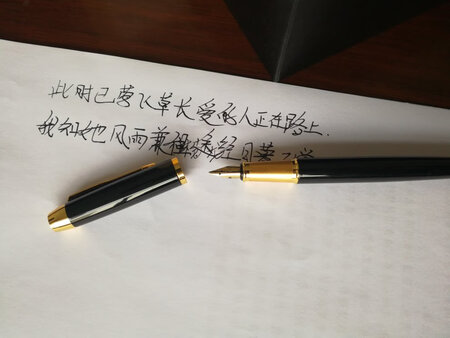 此时已莺飞草长爱的人正在路上.
我知她风雨兼程途经日暮